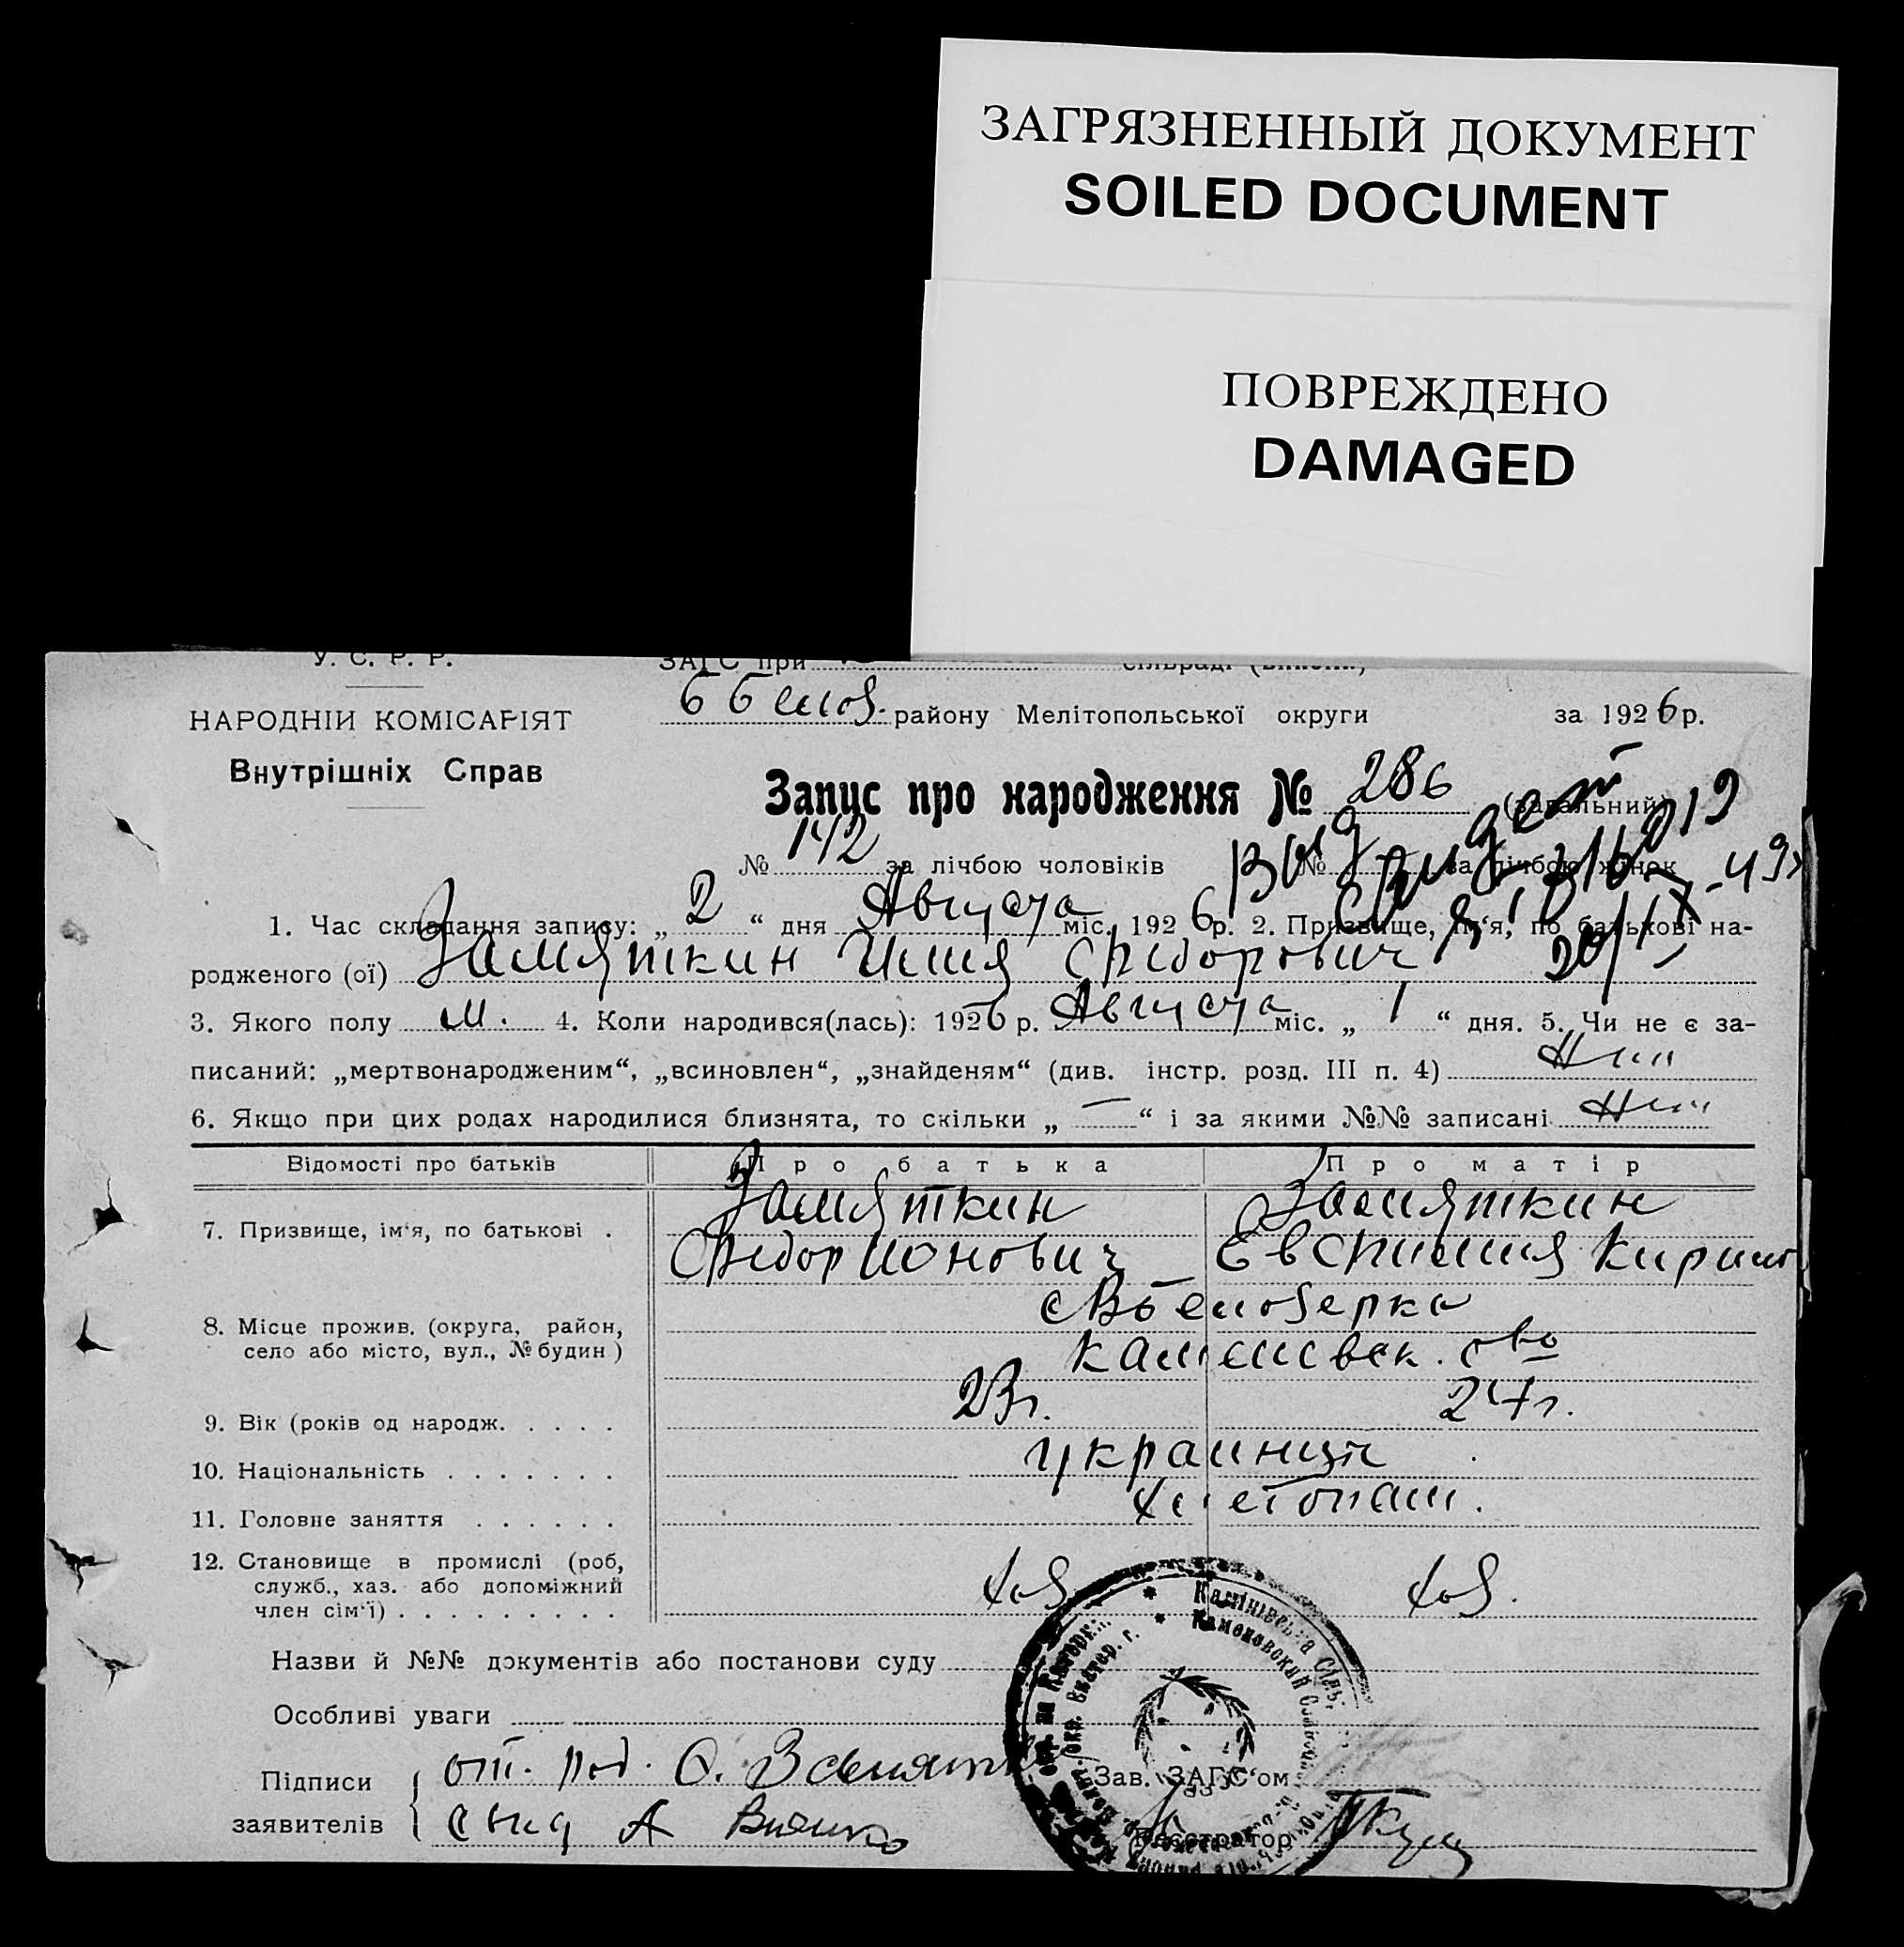 ЗАГРЯЗНЕННЫЙ ДОКУМЕНТ
SOILED DOCUMENT
ПОВРЕЖДЕНО
DAMAGED
У. С. Р. Р.
ЗАГС при
НАРОДНІЙ КОМІСАРІЯТ
Внутрішніх Справ
району Мелітопольської округи за 1926 р.
Запис про народження № 286 (загальний)
№ 142 за лічбою чоловіків № за лічбою жінок
1. Час складання запису: „ 2 “ дня Августа міс. 1926 р. 2. Призвище, ім‘я, по батькові на-
родженого (ої) Замяткин Илия Федорович
3. Якого полу м. 4. Коли народився(лась): 1926 р. Августа міс. „ 1 “ дня. 5. Чи не є за-
писаний: „мертвонародженим“, „всиновлен“, „знайденям“ (див. інстр. розд. III п. 4) Нет
6. Якщо при цих родах народилися близнята, то скільки „ — “ і за якими №№ записані Нет
Відомості про батьків Про батька Про матір
7. Призвище, ім‘я, по батькові . Замяткин Замяткин
Федор Ионович Евфимия Кирил
8. Місце прожив. (округа, район,
село або місто, вул., № будин) Белозерка
Каменск.
9. Вік (років од народж. . . . . 23 г. 24 г.
10. Національність . . . . . . . украинцы
11. Головне заняття . . . . . . хлебопаш.
12. Становище в промислі (роб,
служб., хаз. або допоміжний
член сім‘ї) . . . . . . . . . хоз. хоз.
Назви й №№ документів або постанови суду
Особливі уваги
Підписи
заявителів
от. род.
Зав. ЗАГС‘ом
Реєстратор